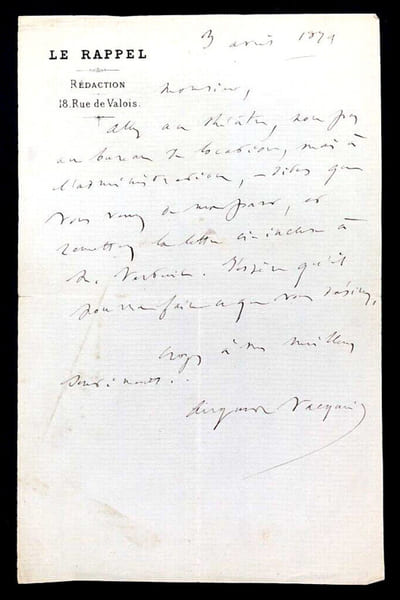 LE RAPPEL
RÉDACTION
18. Rue de Valois.
3 avril 1879
Monsieur,
Allez au théâtre, non pas
au bureau de location, mais à
l'administration, — dites que
vous venez de ma part, et
remettez la lettre ci-incluse à
M.
J'espère qu'il
pourra faire ce que vous désirez.
Croyez à mes meilleurs
sentiments.
Auguste Vacquerie